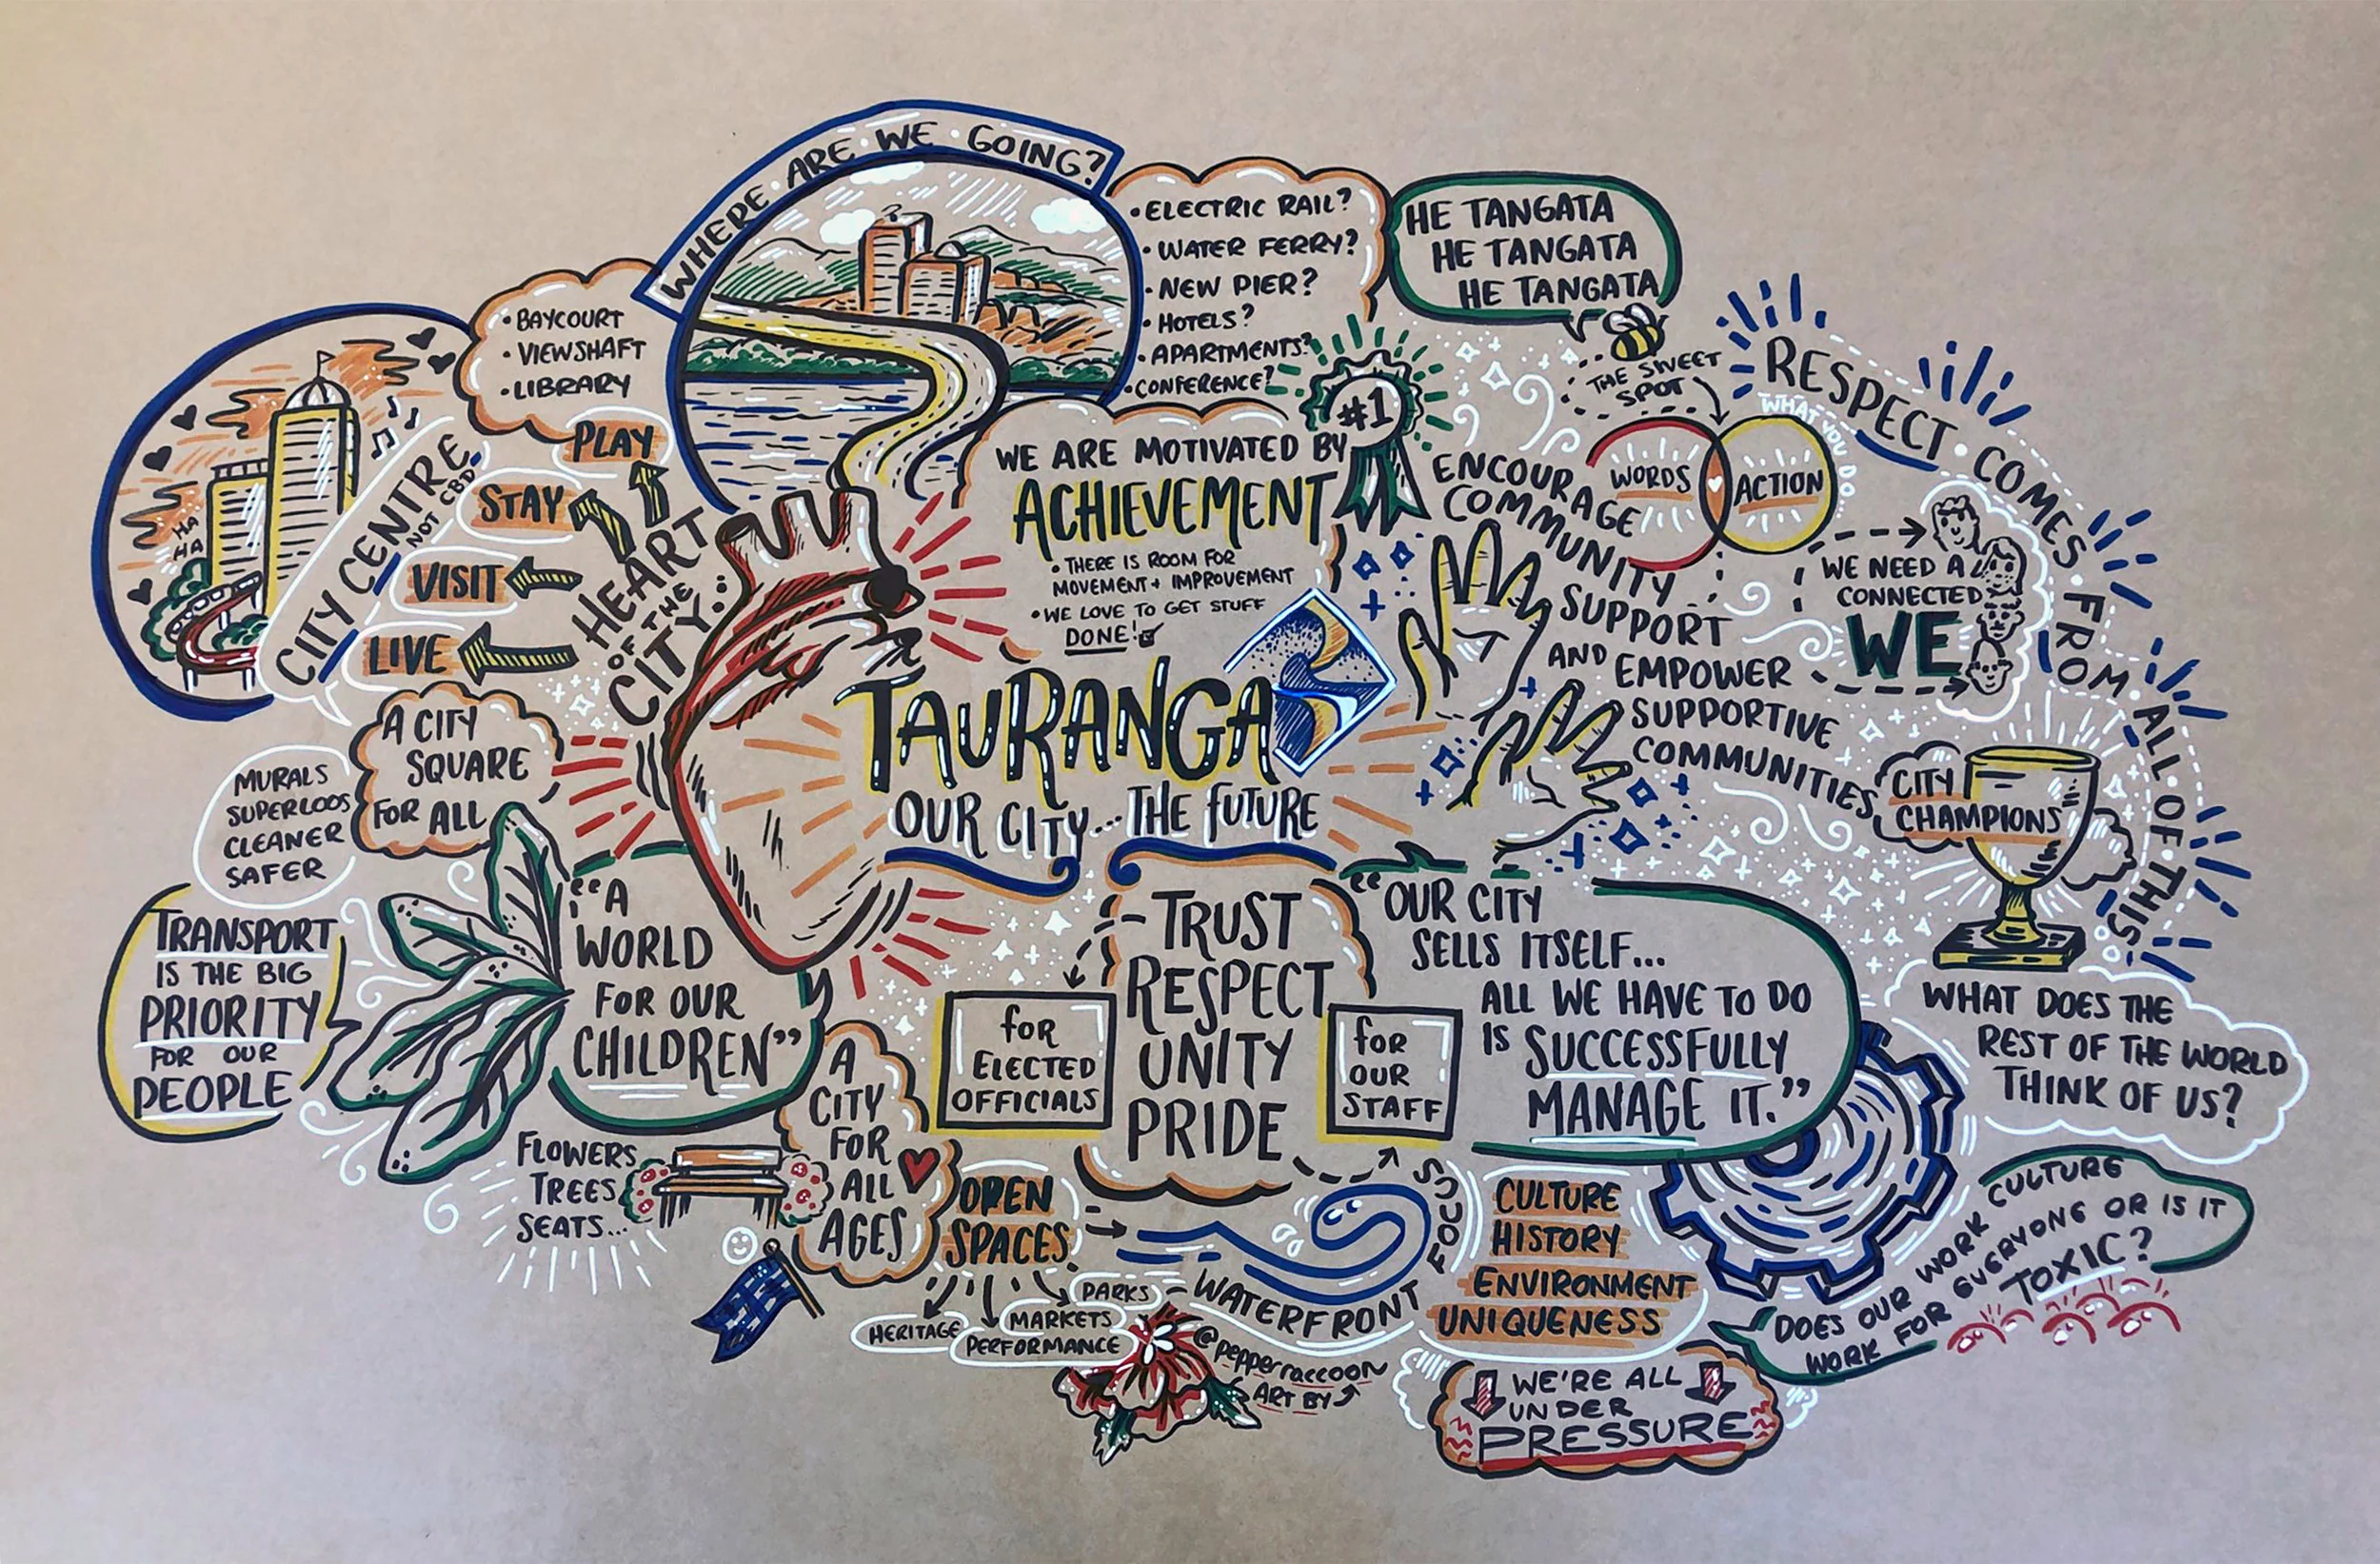 WHERE · ARE · WE · GOING?
• ELECTRIC RAIL?
• WATER FERRY?
• NEW PIER?
• HOTELS?
• APARTMENTS?
• CONFERENCE?
HE TANGATA
HE TANGATA
HE TANGATA
THE SWEET
SPOT
WORDS
ACTION
WHAT YOU DO
RESPECT · COMES · FROM · ALL · OF · THIS
• BAYCOURT
• VIEWSHAFT
• LIBRARY
HA
HA
CITY CENTRE
NOT CBD
PLAY
STAY
VISIT
LIVE
HEART
OF THE
CITY
WE ARE MOTIVATED BY
ACHIEVEMENT
• THERE IS ROOM FOR
MOVEMENT + IMPROVEMENT
• WE LOVE TO GET STUFF
DONE!
#1
ENCOURAGE
COMMUNITY
SUPPORT
AND EMPOWER
SUPPORTIVE
COMMUNITIES
WE NEED A
CONNECTED
WE
CITY
CHAMPIONS
TAURANGA
OUR CITY... THE FUTURE
A CITY
SQUARE
FOR ALL
MURALS
SUPERLOOS
CLEANER
SAFER
TRANSPORT
IS THE BIG
PRIORITY
FOR OUR
PEOPLE
"A
WORLD
FOR OUR
CHILDREN"
- TRUST
RESPECT
UNITY
PRIDE
for
ELECTED
OFFICIALS
for
OUR
STAFF
"OUR CITY
SELLS ITSELF...
ALL WE HAVE TO DO
IS SUCCESSFULLY
MANAGE IT."
WHAT DOES THE
REST OF THE WORLD
THINK OF US?
FLOWERS
TREES
SEATS...
A
CITY
FOR
ALL
AGES
OPEN
SPACES
HERITAGE
PARKS
MARKETS
PERFORMANCE
WATERFRONT FOCUS
CULTURE
HISTORY
ENVIRONMENT
UNIQUENESS
DOES OUR WORK CULTURE
WORK FOR EVERYONE OR IS IT
TOXIC?
@pepperraccoon
ART BY
WE'RE ALL
UNDER
PRESSURE